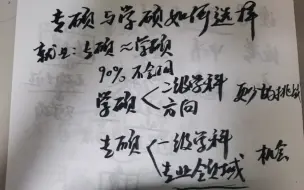 专硕与学硕如何选择
就业:专硕≈学硕
90% 不会问
学硕 二级学科
方向
更少的挑战
专硕 一级学科
专业领域
机会